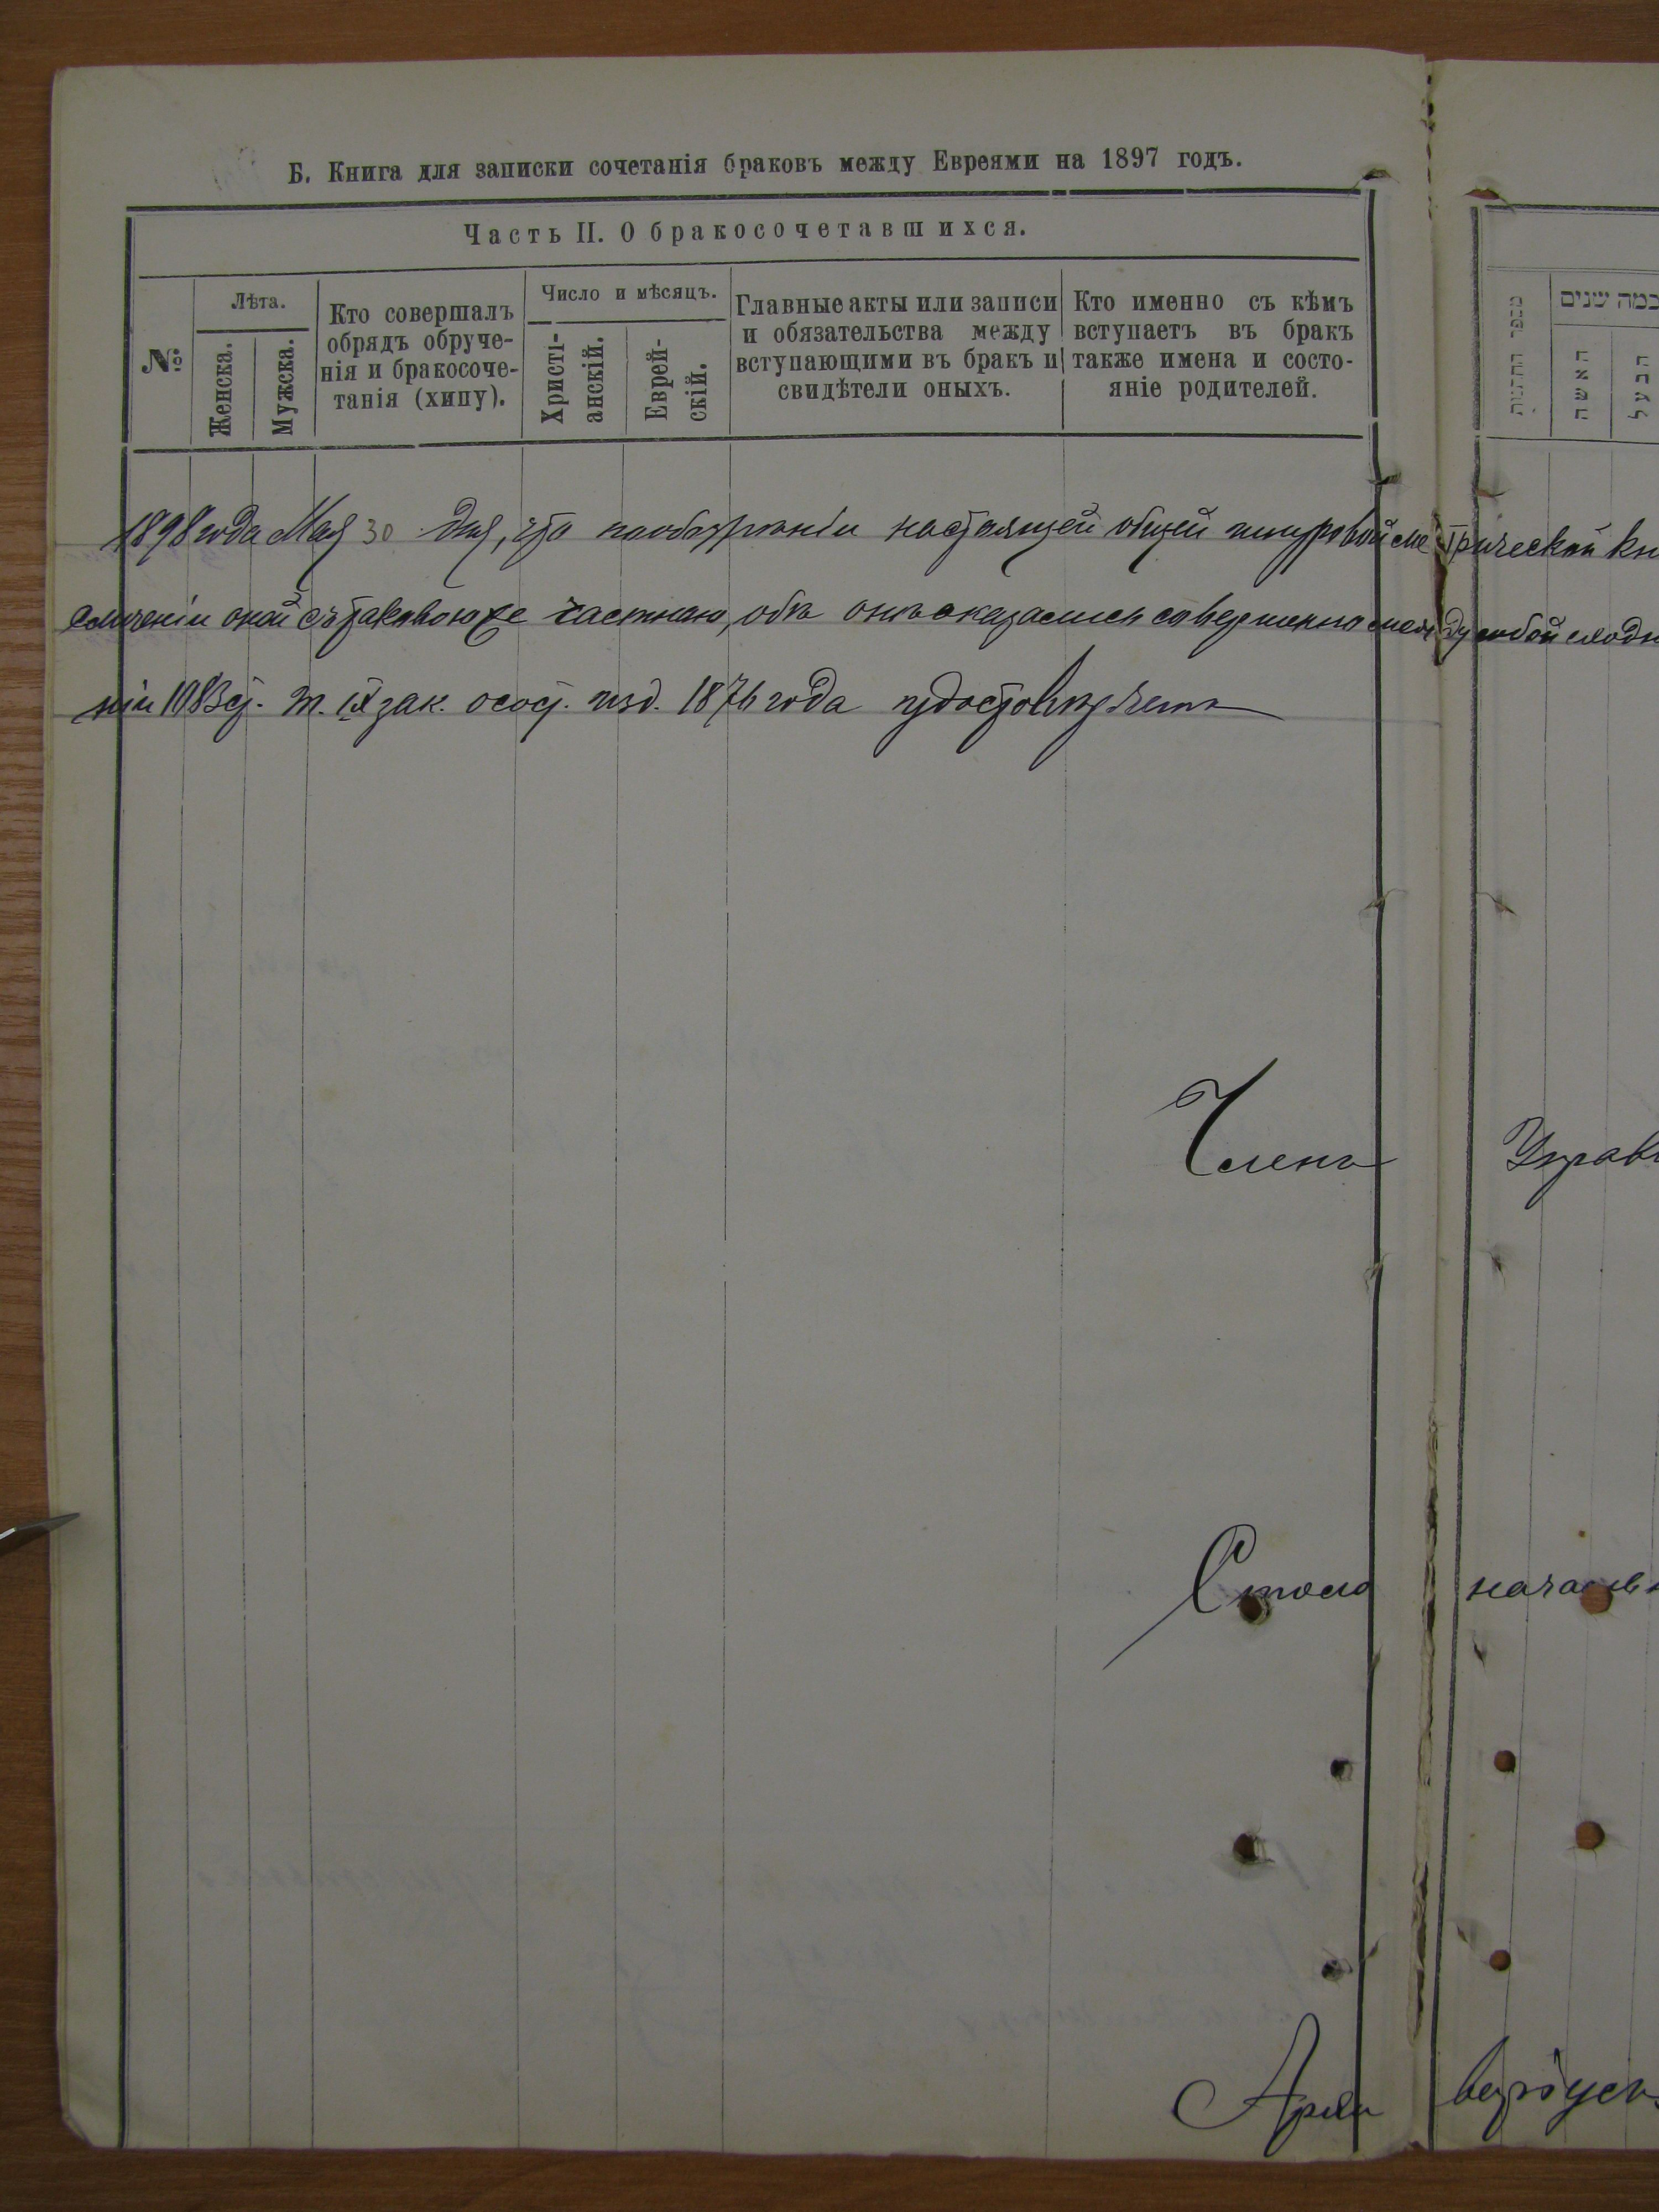 Б. Книга для записки сочетанія браковъ между Евреями на 1897 годъ.
Часть II. О бракосочетавшихся.
№
Лѣта.
Женска.
Мужска.
Кто совершалъ
обрядъ обруче-
нія и бракосоче-
танія (хипу).
Число и мѣсяцъ.
Христі-
анскій.
Еврей-
скій.
Главные акты или записи
и обязательства между
вступающими въ бракъ и
свидѣтели оныхъ.
Кто именно съ кѣмъ
вступаетъ въ бракъ
также имена и состо-
яніе родителей.
מספר החתונות
כמה שנים
האשה
הבעל
1898 года Мая 30 дня, что по обозрѣніи настоящей общей шнуровой метрической кн
сличеніи оной съ таковою же частною, обѣ онѣ оказались совершенно между собой сходн
ніи 1083 ст. т. IX зак. о сост. изд. 1876 года удостовѣряетъ
Членъ Управ
Столоначальн